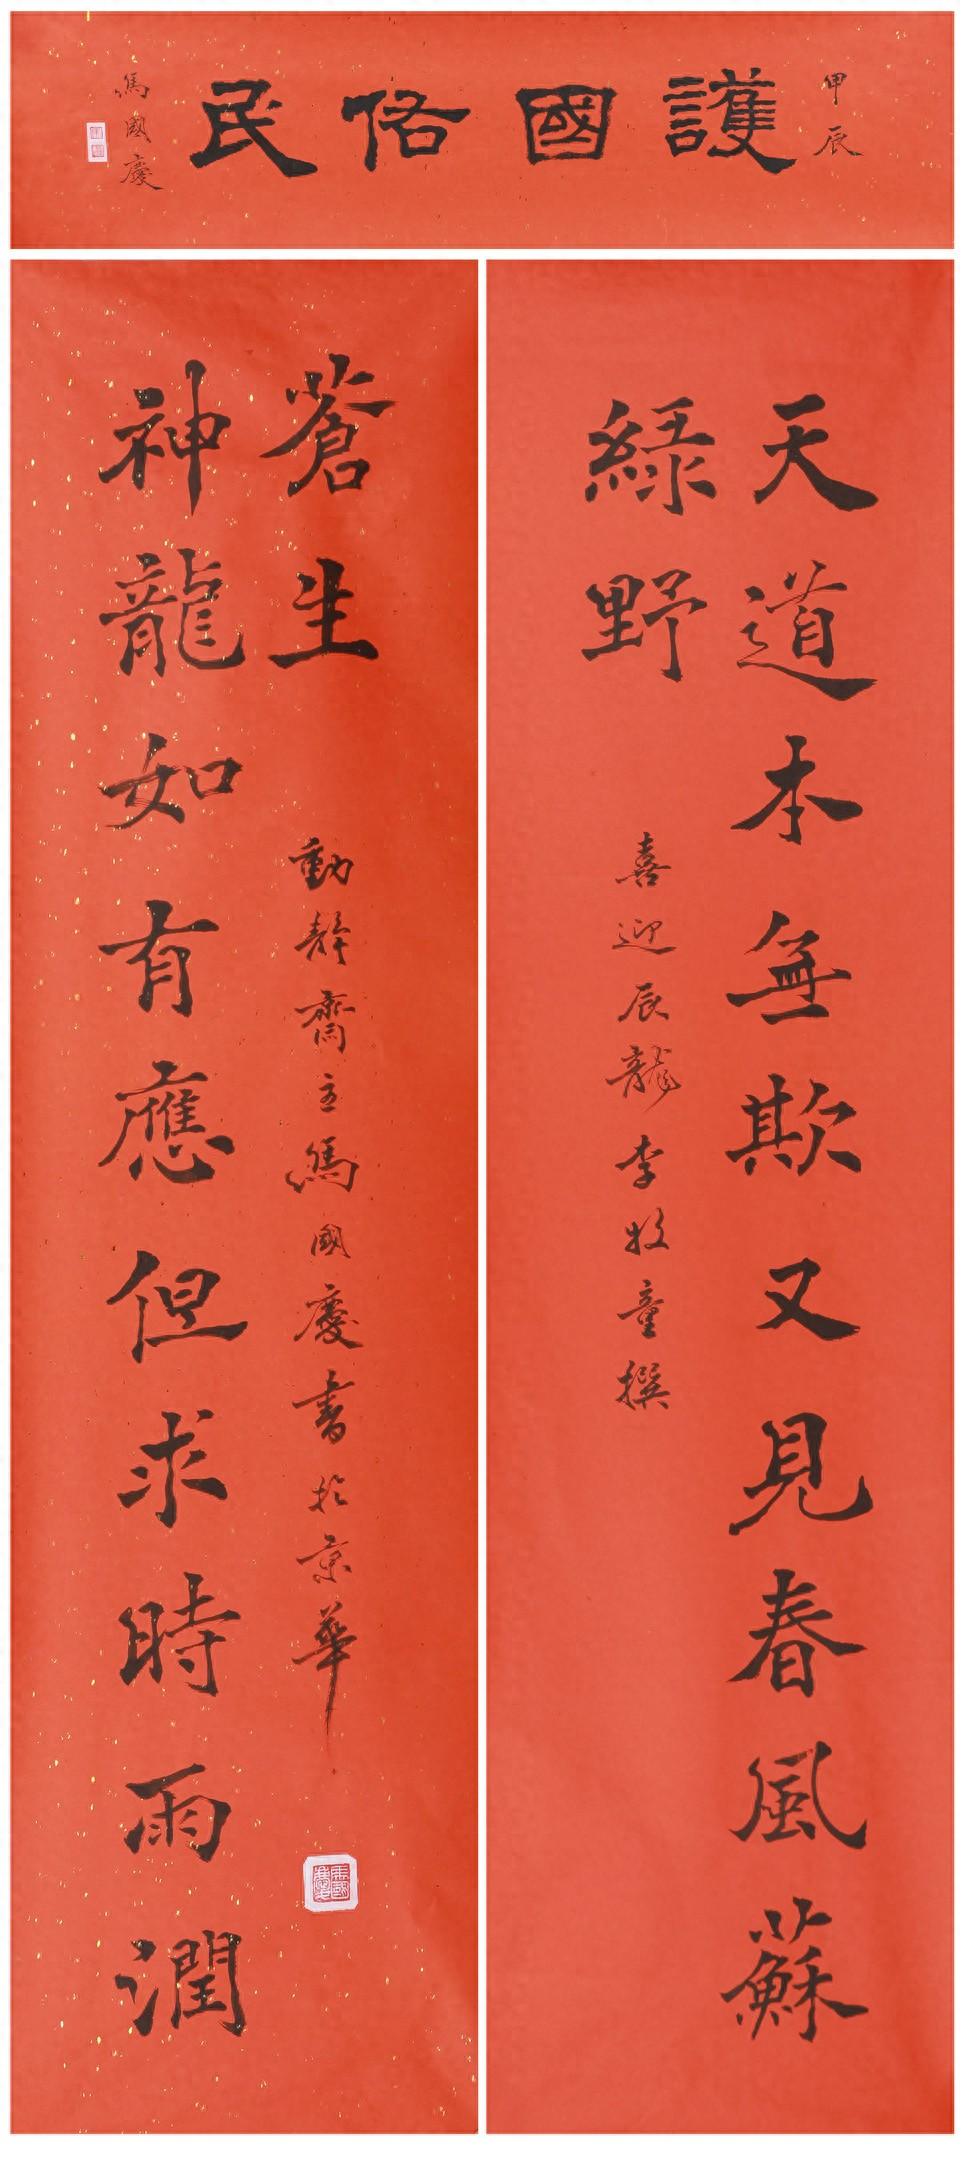 甲辰
護國佑民
馬國慶
天道本無欺又見春風蘇
綠野
喜迎辰龍李牧童撰
神龍如有應但求時雨潤
蒼生
動靜齋主馬國慶書於京華